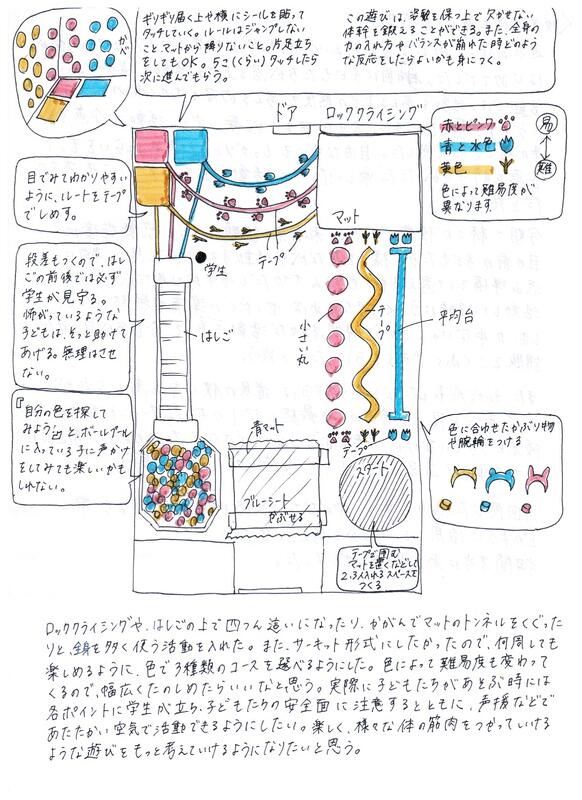 かべ
ギリギリ届く上や横にシールを貼って
タッチしていく。ルールはジャンプしない
ことマットから降りないこと。片足立ち
をしてもOK。5こ(くらい)タッチしたら
次に進んでもらう。
この遊びは、姿勢を保つ上で欠かせない
体幹を鍛えることができる。また、全身の
力の入れ方やバランスが崩れた時どのよう
な反応をしたらよいかも身につく。
ドア
ロッククライミング
赤とピンク
青と水色
黄色
易
難
色によって難易度が
異なります
目でみてわかりやすい
ように、ルートをテープ
でしめす。
マット
テープ
学生
段差もつくので、はし
ごの前後では必ず
学生が見守る。
怖がっているような
子どもは、そっと助けて
あげる。無理はさせ
ない。
はしご
小さい丸
テープ
平均台
『自分の色を探して
みよう』と、ボールプール
に入っている子に声かけ
をしてみても楽しいかも
しれない。
色に合わせたかぶり物
や腕輪をつける
青マット
ブルーシート
かぶせる
テープ
スタート
テープで囲む
マットを置くなどして
2,3人入れるスペースを
つくる
ロッククライミングや、はしごの上で四つん這いになったり、かがんでマットのトンネルをくぐった
りと、全身を多く使う活動を入れた。また、サーキット形式にしたかったので、何周しても
楽しめるように、色で3種類のコースを選べるようにした。色によって難易度も変わって
くるので、幅広くたのしめたらいいなと思う。実際に子どもたちがあそぶ時には
各ポイントに学生が立ち、子どもたちの安全面に注意するとともに、声援などで
あたたかい空気で活動できるようにしたい。楽しく、様々な体の筋肉をつかっていける
ような遊びをもっと考えていけるようになりたいと思う。